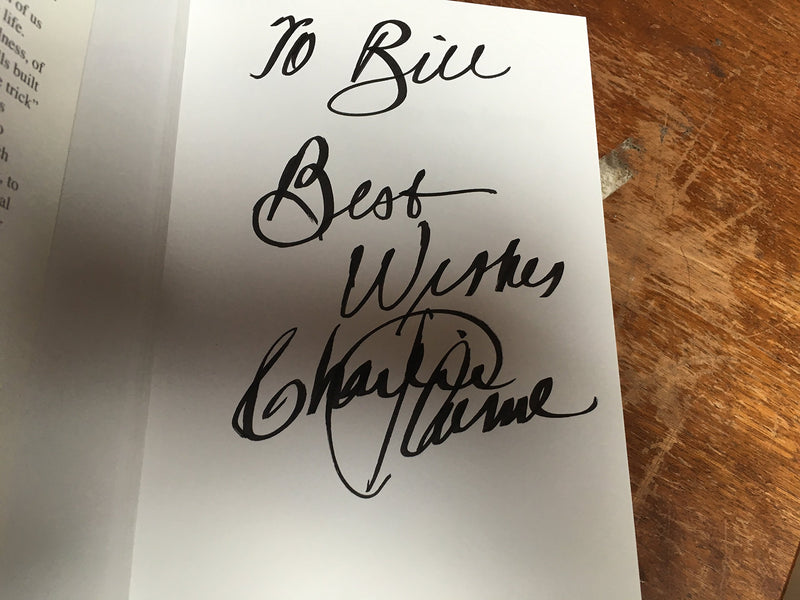 of us
life.
ls built
trick"
to
To Bill
Best
Wishes
Charlie